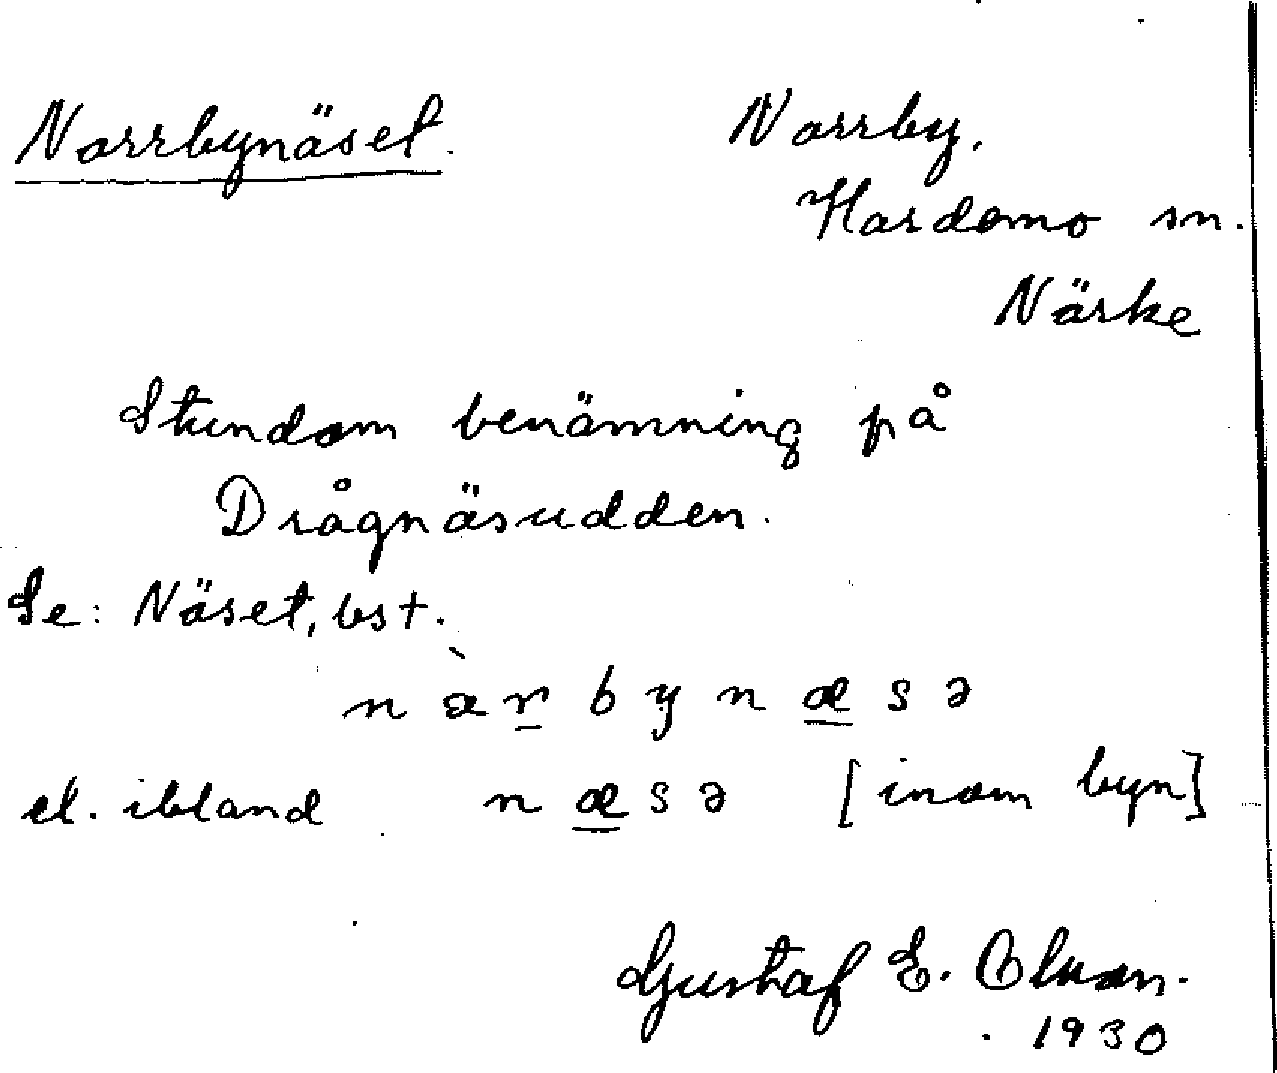 Norrbynäset. Norrby,
Hardemo sn.
Närke
Stundom benämning på
Drågnäsudden.
Se: Näset, bst.
n à r b y n æ s ə
el. ibland n æ s ə [inom byn]
Gustaf E. Olsson.
1930